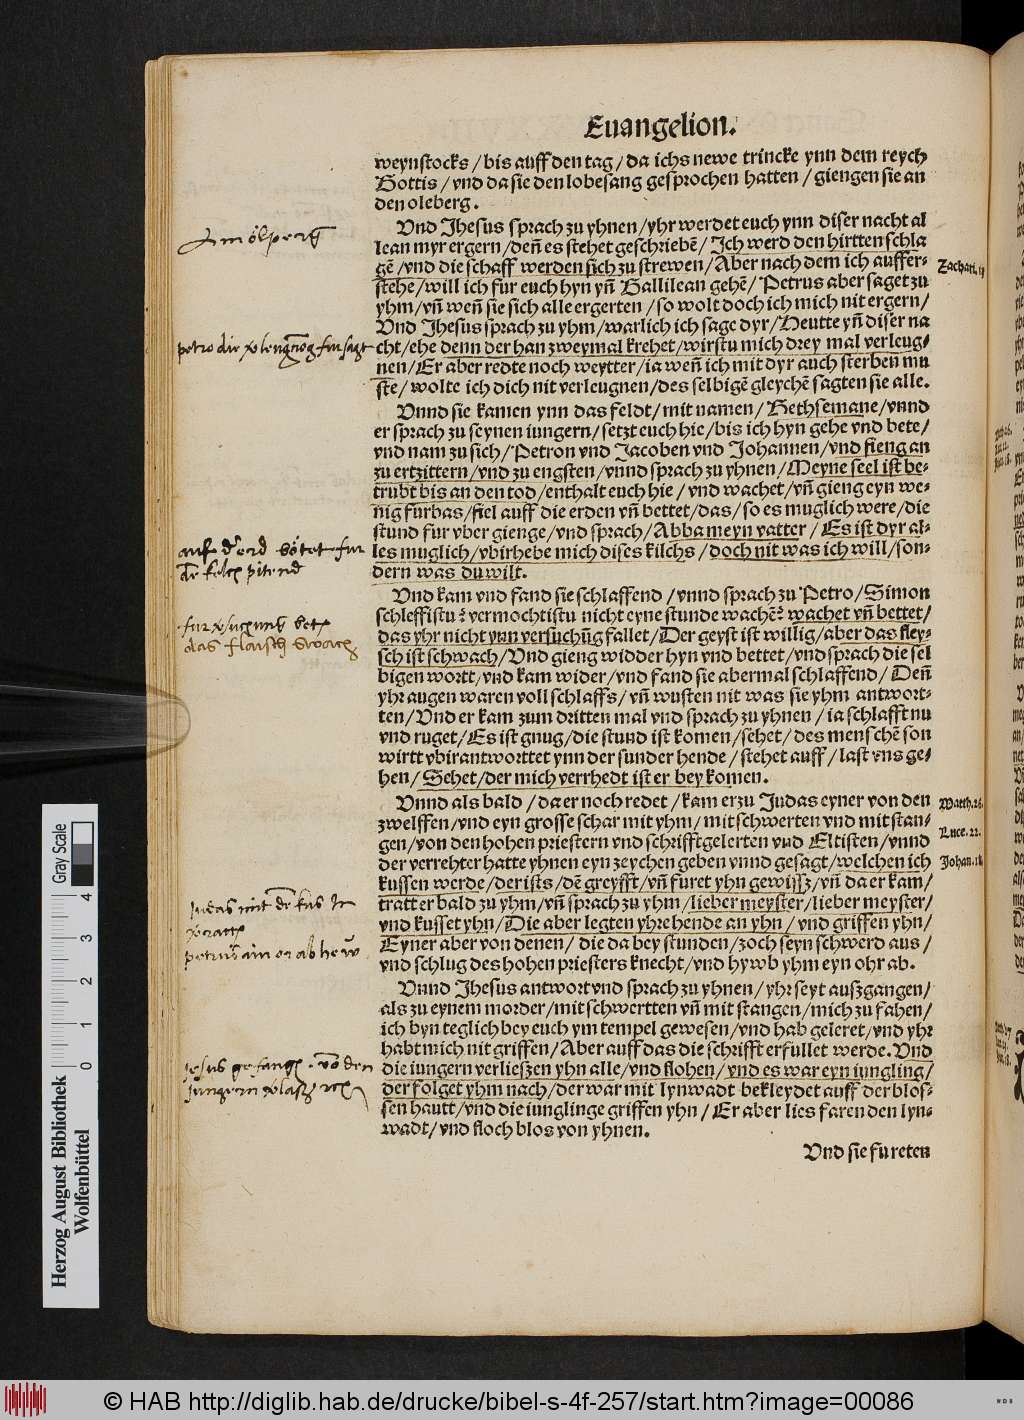 Euangelion.
weynstocks / bis auff den tag / da ichs newe trincke ynn dem reych
Gottis / vnd da sie den lobesang gesprochen hatten / giengen sie an
den oleberg.
Vnd Jhesus sprach zu yhnen / yhr werdet euch ynn diser nacht al
lean myr ergern / deñ es stehet geschriebẽ / Ich werd den hirtten schla
gẽ / vnd die schaff werden sich zu strewen / Aber nach dem ich auffer-
stehe / will ich fur euch hyn yñ Gallilean gehẽ / Petrus aber saget zu
yhm / vñ weñ sie sich alle ergerten / so wolt doch ich mich nit ergern /
Vnd Jhesus sprach zu yhm / warlich ich sage dyr / Heutte yñ diser na
cht / ehe denn der han zweymal krehet / wirstu mich drey mal verleug-
nen / Er aber redte noch weytter / ia weñ ich mit dyr auch sterben mu
ste / wolte ich dich nit verleugnen / des selbigẽ gleychẽ sagten sie alle.
Vnnd sie kamen ynn das feldt / mit namen / Gethsemane / vnnd
er sprach zu seynen iungern / setzt euch hie / bis ich hyn gehe vnd bete /
vnd nam zu sich / Petron vnd Jacoben vnd Johannen / vnd fieng an
zu ertzittern / vnd zu engsten / vnnd sprach zu yhnen / Meyne seel ist be-
trubt bis an den tod / enthalt euch hie / vnd wachet / vñ gieng eyn we-
nig furbas / fiel auff die erden vñ bettet / das / so es muglich were / die
stund fur vber gienge / vnd sprach / Abba meyn vatter / Es ist dyr al-
les muglich / vbirhebe mich dises kilchs / doch nit was ich will / son-
dern was du wilt.
Vnd kam vnd fand sie schlaffend / vnnd sprach zu Petro / Simon
schleffistu? vermochtistu nicht eyne stunde wachẽ? wachet vñ bettet /
das yhr nicht ynn versuchũg fallet / Der geyst ist willig / aber das fley-
sch ist schwach / Vnd gieng widder hyn vnd bettet / vnd sprach die sel
bigen wortt / vnd kam wider / vnd fand sie abermal schlaffend / Deñ
yhr augen waren voll schlaffs / vñ wusten nit was sie yhm antwort-
ten / Vnd er kam zum dritten mal vnd sprach zu yhnen / ia schlafft nu
vnd ruget / Es ist gnug / die stund ist komen / sehet / des menschẽ son
wirtt vbirantworttet ynn der sunder hende / stehet auff / last vns ge-
hen / Sehet / der mich verrhedt ist er bey komen.
Vnnd als bald / da er noch redet / kam erzu Judas eyner von den
zwelffen / vnd eyn grosse schar mit yhm / mit schwerten vnd mit stan-
gen / von den hohen priestern vnd schrifftgelerten vnd Eltisten / vnnd
der verrehter hatte yhnen eyn zeychen geben vnnd gesagt / welchen ich
kussen werde / der ists / dẽ greyfft / vñ furet yhn gewissz / vñ da er kam /
tratt er bald zu yhm / vñ sprach zu yhm / lieber meyster / lieber meyster /
vnd kusset yhn / Die aber legten yhre hende an yhn / vnd griffen yhn /
Eyner aber von denen / die da bey stunden / zoch seyn schwerd aus /
vnd schlug des hohen priesters knecht / vnd hywb yhm eyn ohr ab.
Vnnd Jhesus antwort vnd sprach zu yhnen / yhr seyt auszgangen /
als zu eynem morder / mit schwertten vñ mit stangen / mich zu fahen /
ich byn teglich bey euch ym tempel gewesen / vnd hab geleret / vnd yhr
habt mich nit griffen / Aber auff das die schrifft erfullet werde. Vnd
die iungern verlieszen yhn alle / vnd flohen / vnd es war eyn iungling /
der folget yhm nach / der war mit lynwadt bekleydet auff der blos-
sen hautt / vnd die iunglinge griffen yhn / Er aber lies faren den lyn-
wadt / vnd floch blos von yhnen.
Vnd sie fureten
Zachari. 13
Matth. 26.
Luce. 22.
Johan. 18
Am ölperg
petro die fursagt
auf d erd
pitend
das flaisch swach
judas mit kus
petrus ain or ab
jesus gefangen von den
jungern
Gray Scale
0 1 2 3 4
Herzog August Bibliothek
Wolfenbüttel
© HAB http://diglib.hab.de/drucke/bibel-s-4f-257/start.htm?image=00086